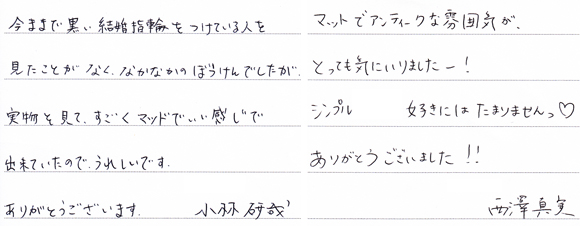 今まで黒い結婚指輪をつけている人を
見たことがなく、なかなかのぼうけんでしたが、
実物を見て、すごくマッドでいい感じで
出来ていたので、うれしいです。
ありがとうございます。 小林 研哉
マットでアンティークな雰囲気が、
とっても気にいりましたー!
シンプル 好きには たまりませんっ♡
ありがとうございました!!
西澤真実